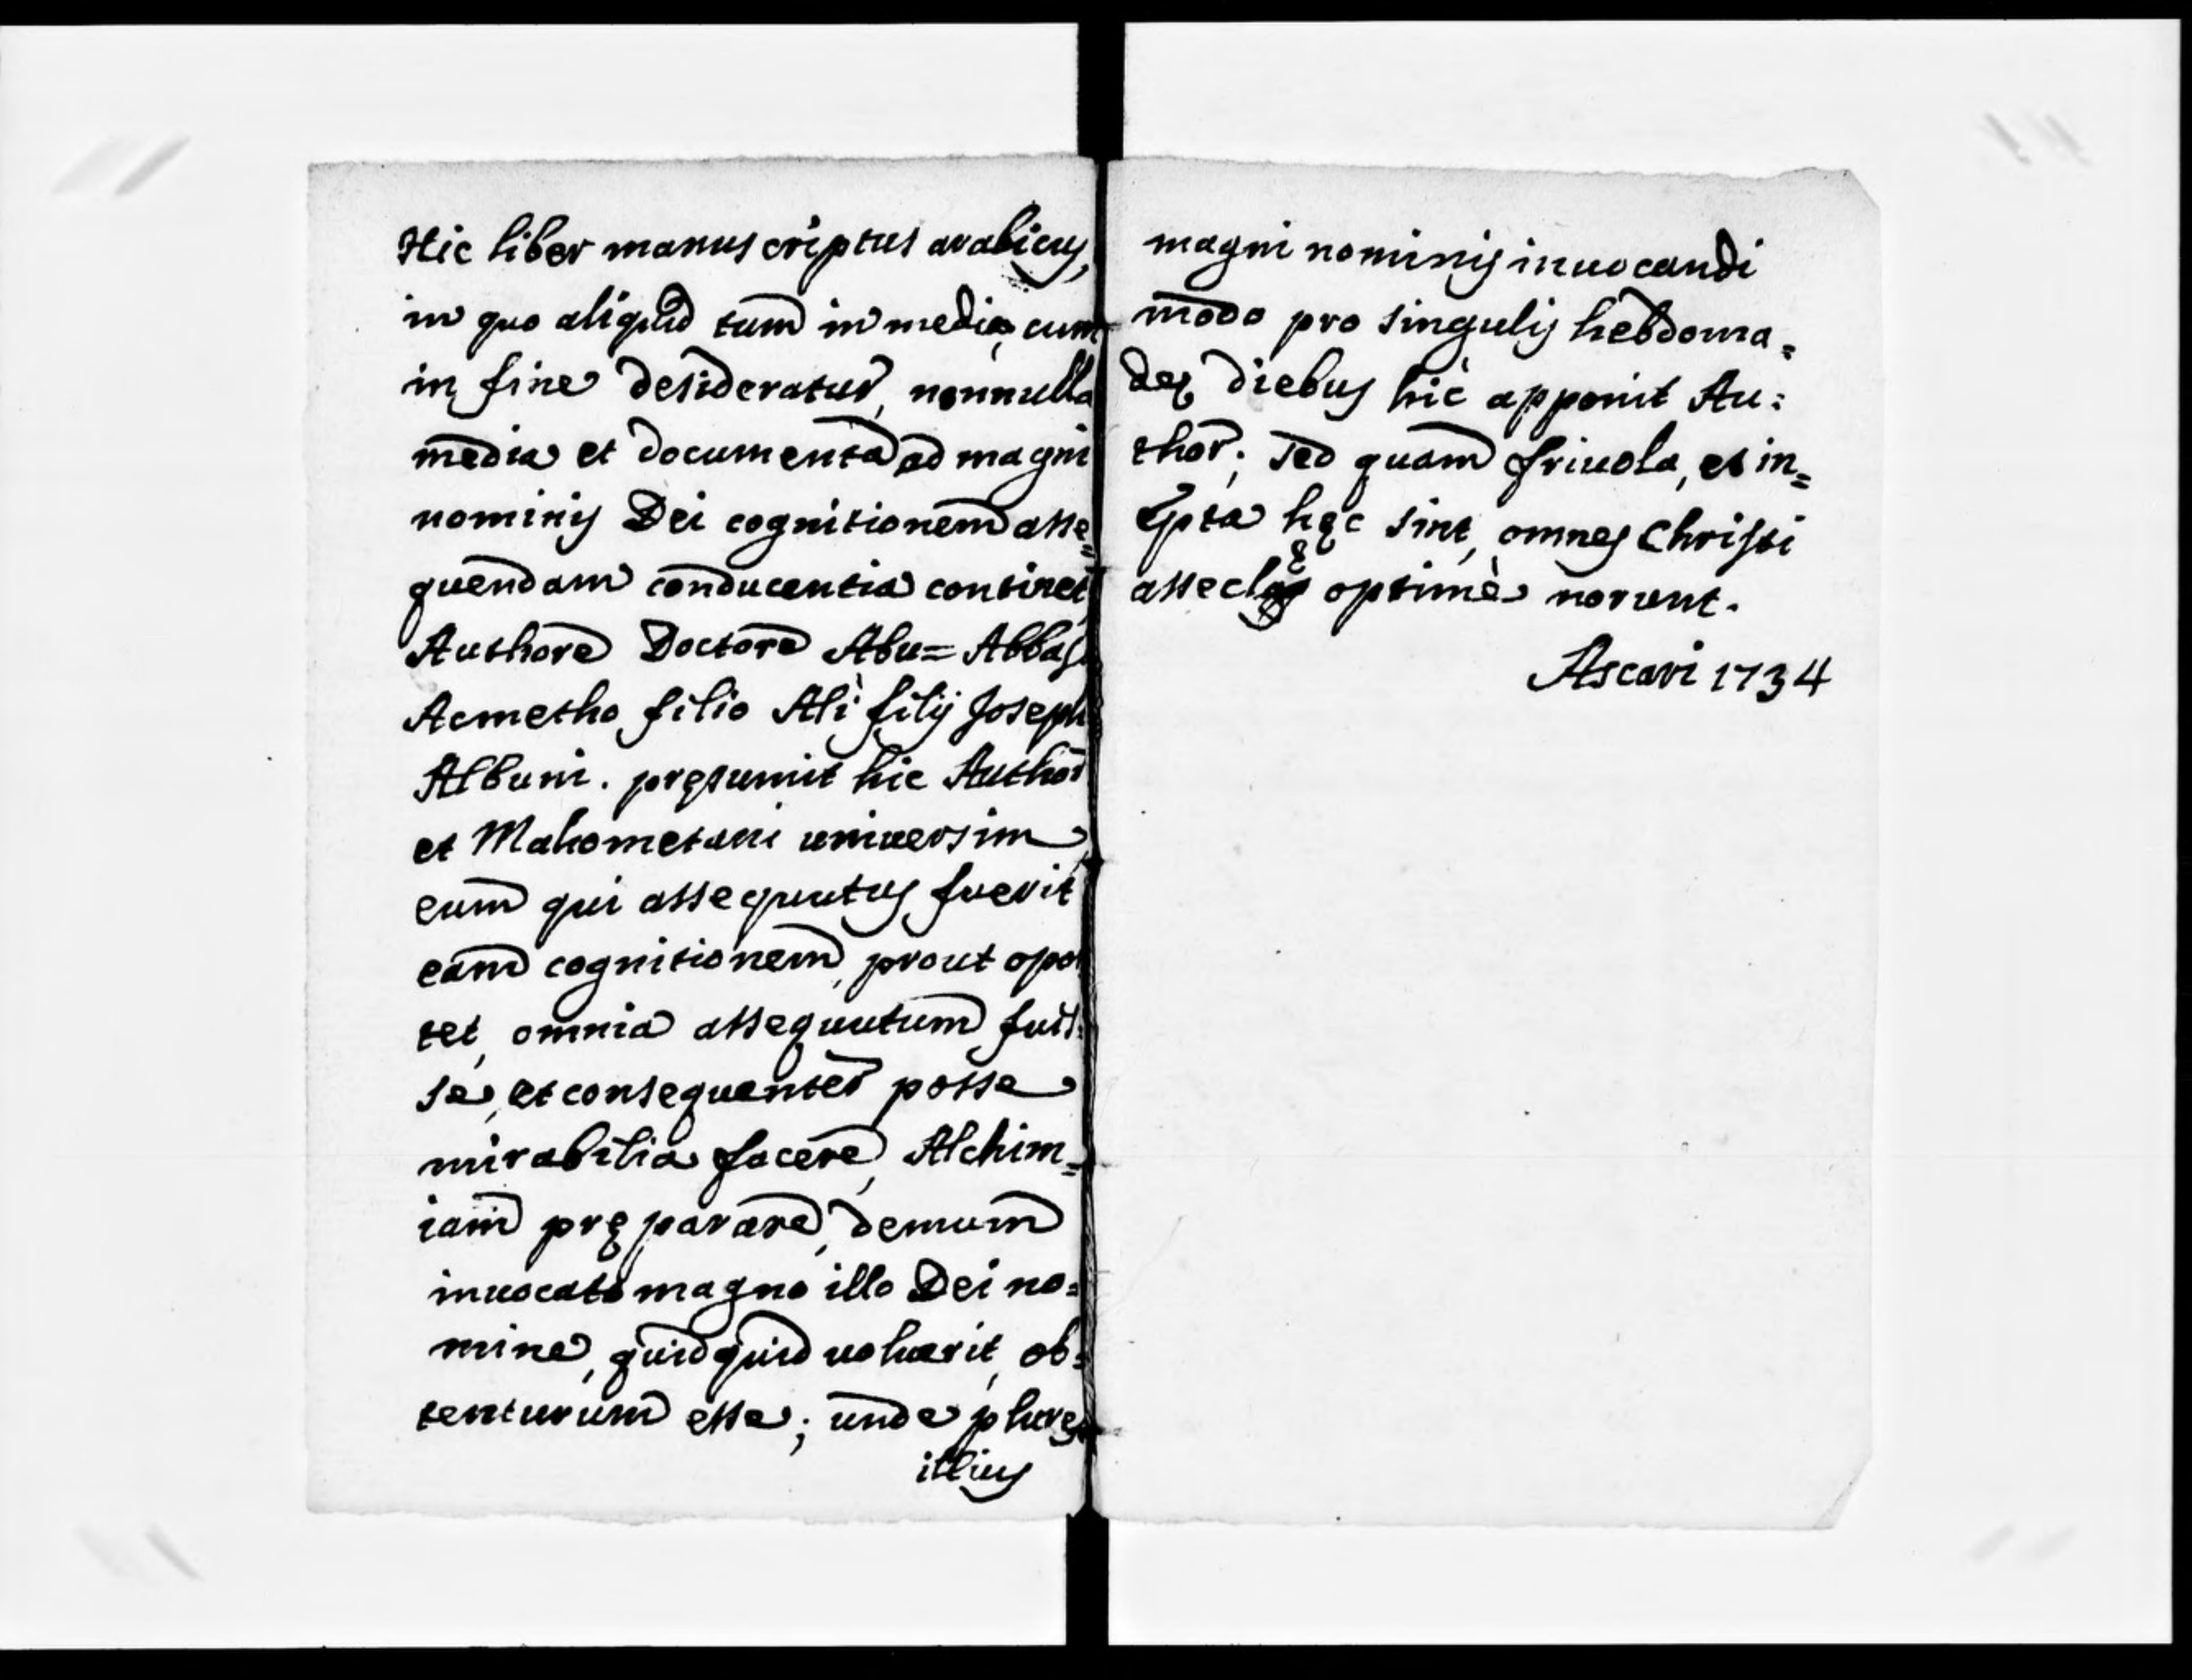 Hic liber manuscriptus arabicus,
in quo aliquid tum in medio, cum
in fine desideratur, nonnulla
media et documenta ad magni
nominis Dei cognitionem asse=
quendam conducentia continet,
Authore Doctore Abu=Abbas
Acmetho filio Alì filij Joseph
Albuni. pręsumit hic Author
et Mahometani universim
eum qui assequutus fuerit
eam cognitionem, prout opor
tet, omnia assequutum fuis=
se, et consequenter posse
mirabilia facere, Alchim=
iam pręparare, demum
inuocato magno illo Dei no=
mine, quidquid uoluerit, ob=
tenturum esse; unde plures
illius
magni nominis inuocandi
modo pro singulis hebdoma=
dę diebus hic apponit Au=
thor; sed quam friuola, et in=
epta hęc sint, omnes Christi
asseclę optimè norunt.
Ascari 1734